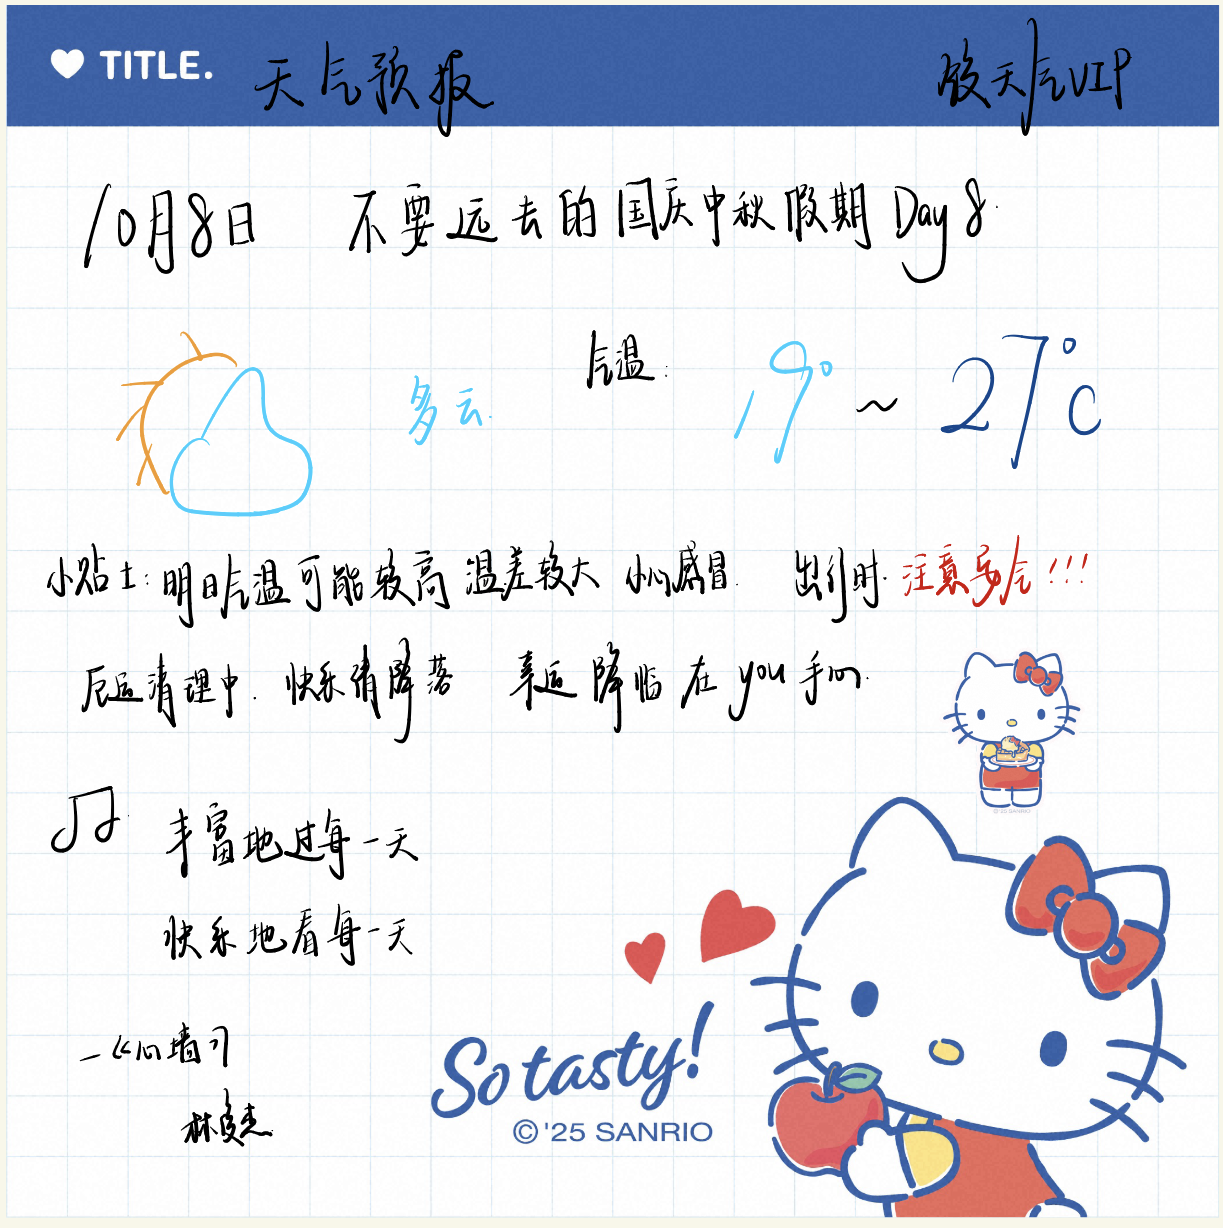 TITLE. 天气预报
天气VIP
10月8日 不要远去的国庆中秋假期 Day 8.
多云.
气温: 19° ~ 27°C
小贴士: 明日气温可能较高 温差较大 小心感冒. 出行时. 注意天气!!!
厄运清理中. 快乐请降落 幸运降临在 you 手心.
丰富地过每一天
快乐地看每一天
—《心墙》
林俊杰
So tasty!
© '25 SANRIO